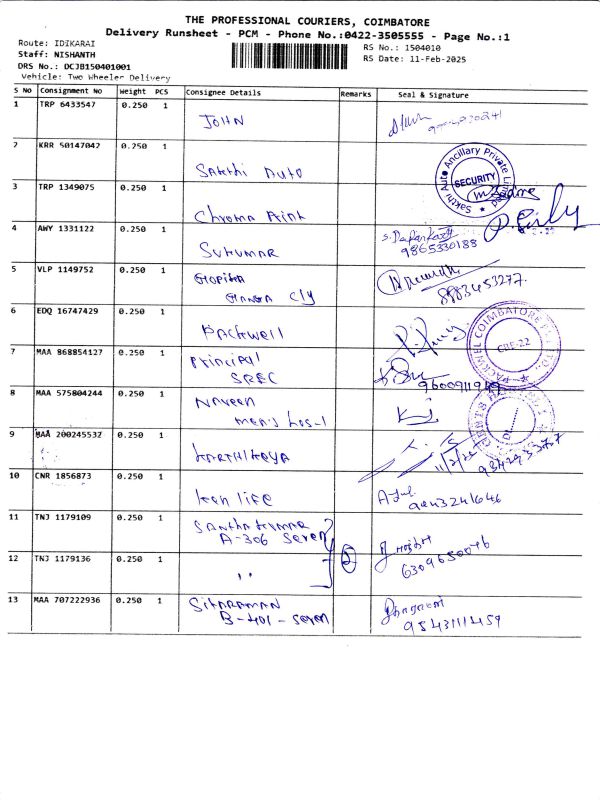 THE PROFESSIONAL COURIERS, COIMBATORE
Delivery Runsheet - PCM - Phone No.:0422-3505555 - Page No.:1
Route: IDIKARAI
Staff: NISHANTH
DRS No.: DCJB150401001
Vehicle: Two Wheeler Delivery
RS No.: 1504010
RS Date: 11-Feb-2025
S No Consignment No Weight PCS Consignee Details Remarks Seal & Signature
1 TRP 6433547 0.250 1 JOHN
2 KRR 50147042 0.250 1 Sakthi Auto
Sakthi Auto Ancillary Private Limited
SECURITY
3 TRP 1349075 0.250 1 Chroma Print
4 AWY 1331122 0.250 1 SUKUMAR
9865330188
5 VLP 1149752 0.250 1 Gopika
Ganga City
8883453277.
6 EDQ 16747429 0.250 1 Packwell
CBE-22
7 MAA 868854127 0.250 1 Principal
SREC
8 MAA 575804244 0.250 1 Naveen
men's hos-1
9 MAA 200245532 0.250 1 KARTHIKEYA
11/2/25
10 CNR 1856873 0.250 1 Ken life
9043241646
11 TNJ 1179109 0.250 1 Santhakumar
A-306 Seven
2
12 TNJ 1179136 0.250 1 "
6309650096
13 MAA 707222936 0.250 1 Sitaraman
B-401 - Seven
9543111459